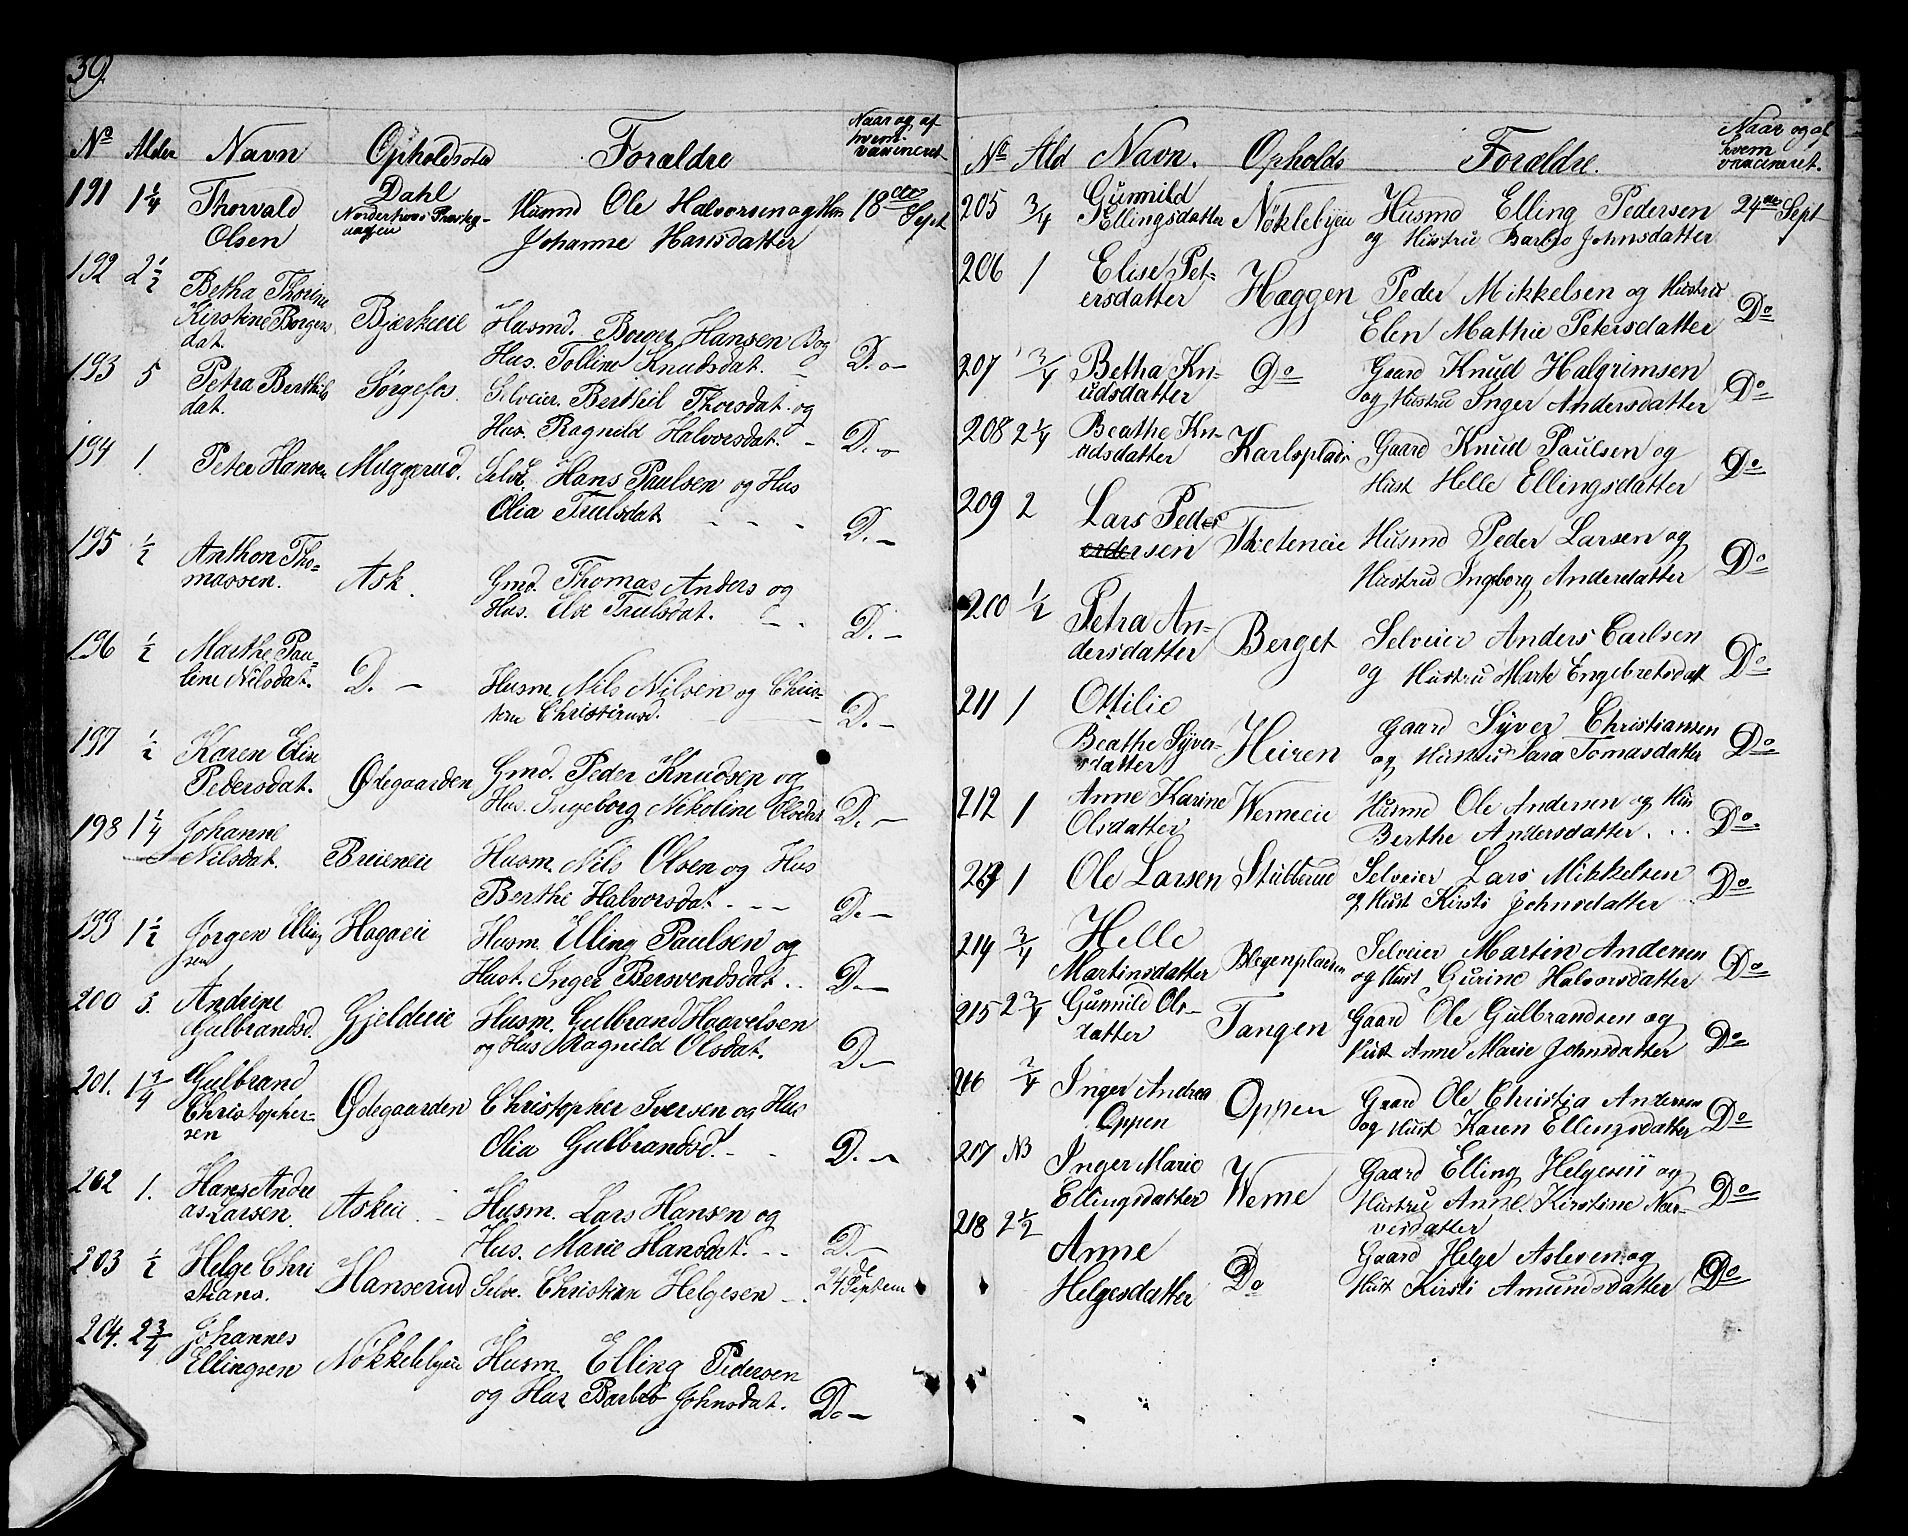 39.
No Alder Navn Opholdssted Forældre Naar og af hvem vaccineret
191 1 1/4 Thorvald Olsen Dahl Husmd Ole Halvorsen og Hus Johanne Hansdatter 18de Sept
192 2 1/2 Betha Thorine Kirstine Borgersdat. Bjerkeeie Husmd. Borger Hansen B og Hus. Tolline Knudsdat. Do
193 5 Petra Berthilsdat. Sørgefos. Selveier Berthil Thorsdat. og Hus. Ragnild Halvorsdat. Do
194 1. Peter Hansen Muggerud. Selve. Hans Paulsen og Hus Olia Trulsdat. D.
195 1/2 Anthon Thomassen. Ask. Gmd. Thomas Anders og Hus. Else Trulsdat. D.
196 1/2 Marthe Pauline Nilsdat. D. Husm. Nils Nilsen og D.
197 1/2 Karen Elise Pedersdat. Ødegaarden Gmd. Peder Knudsen og Hus. Ingeborg Nikoline Olsdat D.
198 1 1/4 Johanne Nilsdat. Breieneie Husm. Nils Olsen og Hus Berthe Halvorsdat. D.
199 1 1/2 Jørgen Ellingsen Hagaeie Husm. Elling Paulsen og Hust. Inger Bersvendsdat. D.
200 5. Andrine Gulbrandsd. Gjeldeeie Husm. Gulbrand Haavelsen og Hus Ragnild Olsdat. D.
201. Gulbrand Christophersen Ødegaarden Christopher Iversen og Hus Olia Gulbrandsd. D.
202 1. Hans Andreas Larsen. Askeie Husm. Lars Hansen og Hus. Marie Hansdat. D.
203 1/2 Helge Christians. Hanserud Selve. Christian Helgesen 24de Septem
204. 2 3/4 Johannes Ellingsen Nøkkelebyeie Husm. Elling Pedersen og Hus Barbro Johnsdat. Do
No Ald Navn. Opholds Forældre. Naar og af hvem vaccineret.
205 3/4 Gunnild Ellingsdatter Nøklebyeie Husmd Elling Pedersen og Hustru Barbro Johnsdatter 24de Sept
206 1 Elise Petersdatter Haggen Peder Mikkelsen og Hustru Elen Mathie Petersdatter Do
207 3/4 Betha Knudsdatter Do Gaard Knud Halgrimsen og Hustru Inger Andersdatter Do
208 2 1/4 Beathe Knudsdatter Karlsplads Gaard Knud Paulsen og Hust Helle Ellingsdatter Do
209 2 Lars Pedersen Tveteneie Husmd Peder Larsen og Hustru Ingeborg Andersdatter Do
200 1/2 Petra Andersdatter Berget Selveier Anders Carlsen og Hustru Marte Engebretsdatt Do
211 1 Ottilie Beathe Syversdatter Heiren Gaard Syver Christiansen og Hustru Sara Tomasdatter Do
212 1 Anne Karine Olsdatter Werneeie Husmd Ole Andersen og Hus Berthe Andersdatter. Do.
213 1 Ole Larsen Stubberud Selveier Lars Mikkelsen og Hust Kirsti Johnsdatter Do
214 3/4 Helle Martinsdatter Blegenpladsen Selveier Martin Andersen og Hust Gurine Halvorsdatter Do
215 2 3/4 Gunnild Olsdatter Tangen Gaard Ole Gulbrandsen og Hust Anne Marie Johnsdatter Do
Inger Andrea Oppen Oppen Gaard Ole Christia Andersen og Hust Karen Ellingsdatter Do
207 Inger Marie Ellingsdatter Werne Gaard Elling Helgesen og Hustru Anne Kirstine Narvesdatter Do
218 2 1/2 Anne Helgesdatter Do Gaard Helge Aslesen og Hust Kirsti Amundsdatter Do